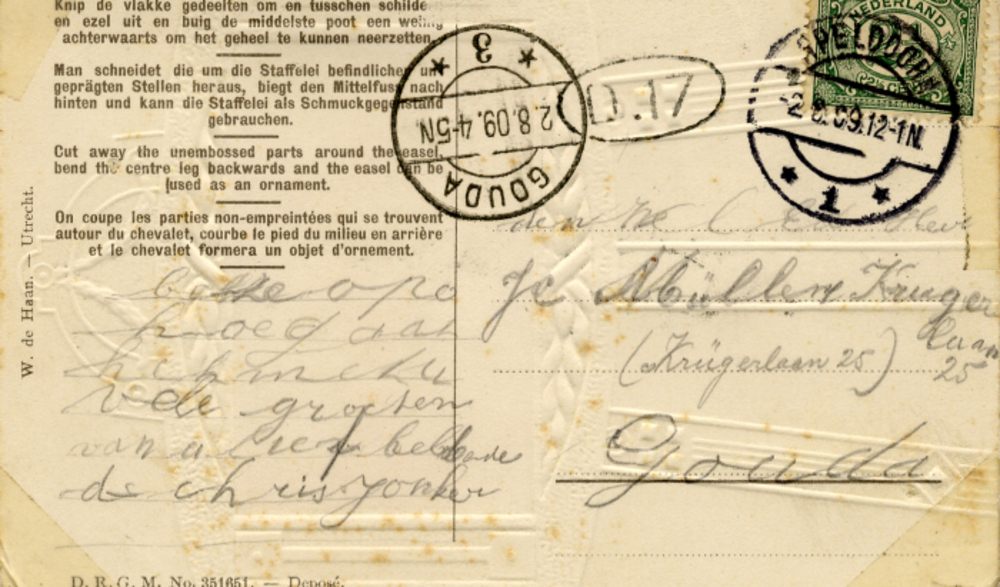 Knip de vlakke gedeelten om en tusschen schilde
en ezel uit en buig de middelste poot een weinig
achterwaarts om het geheel te kunnen neerzetten.
Man schneidet die um die Staffelei befindlichen un-
geprägten Stellen heraus, biegt den Mittelfuss nach
hinten und kann die Staffelei als Schmuckgegenstand
gebrauchen.
Cut away the unembossed parts around the easel,
bend the centre leg backwards and the easel can be
used as an ornament.
On coupe les parties non-empreintées qui se trouvent
autour du chevalet, courbe le pied du milieu en arrière
et le chevalet formera un objet d'ornement.
W. de Haan. — Utrecht.
GOUDA
2.8.09.4-5N
3
NEDERLAND
2½ CENT
-2.8.09.12-1N.
1
den
Heer
Müller Kruger
laan
(Krügerlaan 25)
25
Gouda
opa
hoed aan
v de groeten
van
de chris Jonker
D. R. G. M. No. 351651. — Deposé.